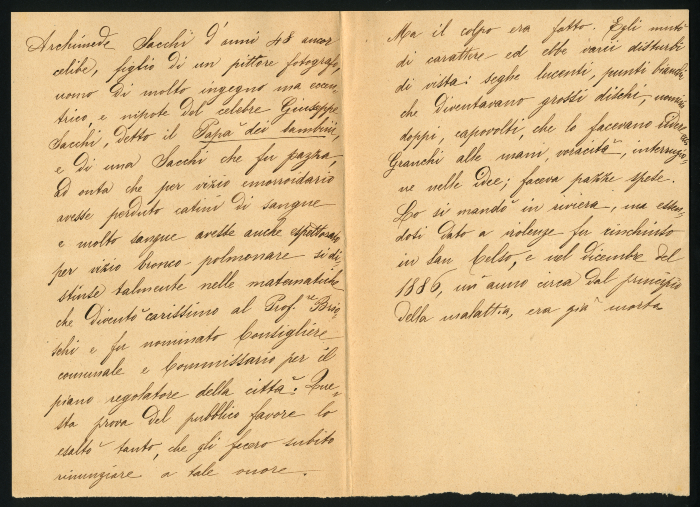 Archimede Sacchi d'anni 48 ancor
celibe, figlio di un pittore fotografo,
uomo di molto ingegno ma eccen-
trico, e nipote del celebre Giuseppe
Sacchi, detto il Papà dei bambini,
e di una Sacchi che fu pazza
ad onta che per vizio emorroidario
avesse perduto catini di sangue
e molto sangue avesse anche espettorato
per vizio bronco-polmonare si di-
stinse talmente nelle matematiche
che diventò carissimo al Prof.re Brio
schi e fu nominato Consigliere
comunale e Commissario per il
piano regolatore della città. Que-
sta prova del pubblico favore lo
esaltò tanto, che gli fecero subito
rinunziare a tale onore.
Ma il colpo era fatto. Egli mutò
di carattere ed ebbe varii disturbi
di vista: seghe lucenti, punti bianchi
che diventavano grossi dischi, uomini
doppi, capovolti, che lo facevano
Granchi alle mani, voracità, interruzio-
ne nelle idee; faceva pazze spese.
Lo si mandò in riviera, ma essen-
dosi dato a violenze fu rinchiuso
in San Celso, e nel dicembre del
1886, un anno circa dal principio
della malattia, era già morto